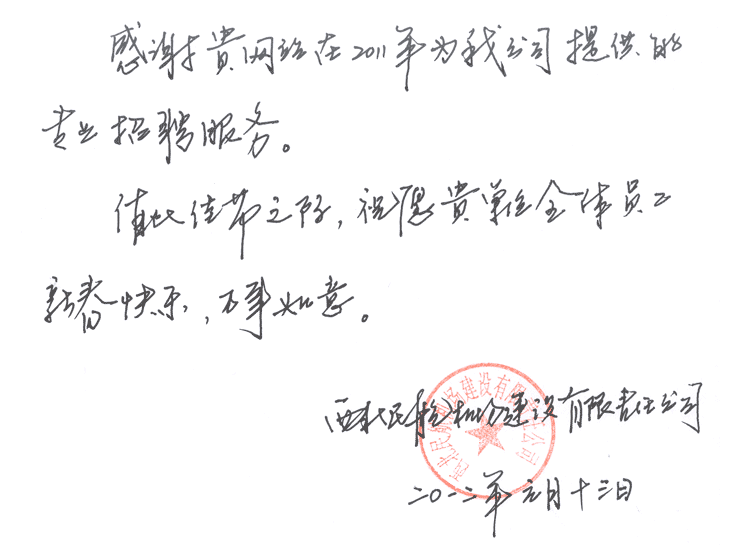 感谢贵网站在2011年为我公司提供的
专业招聘服务。
值此佳节之际，祝愿贵单位全体员工
新春快乐，万事如意。
西北民航机场建设有限责任公司
西北民航机场建设有限责任公司
二〇一二年元月十三日